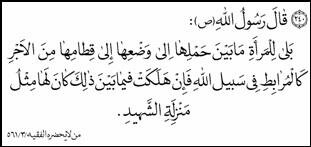 ﴿٢٤٠﴾ قَالَ رَسُولُ اللهِ (ص):
بَلىٰ لِلْمَرْأَةِ مَا بَيْنَ حَمْلِهَا اِلىٰ وَضْعِهَا إِلىٰ فِطَامِهَا مِنَ الْاَجْرِ
كَالْمُرَابِطِ فِى سَبِيلِ اللهِ فَإِنْ هَلَكَتْ فِيمَا بَيْنَ ذٰلِكَ كَانَ لَهَا مِثْلُ
مَنْزِلَةِ الشَّهِيدِ.
من لایحضره الفقیه/٣/٥٦١